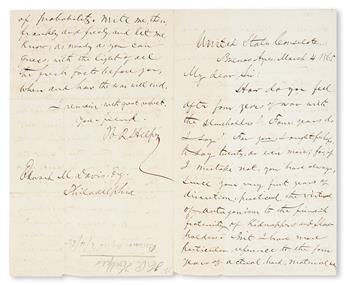 United States Consulate,
Buenos Ayres, March 4, 1865.
My dear Sir:
How do you feel
after four years of war with
the slaveholders? Four years do
I say? For you, I might fitly
to say twenty, or even more, for, if
I mistake not, you have always,
since your very first years of
discretion, practiced the virtue
of antagonism to the
fraternity of kidnappers and slave-
holders. But I have more
particular reference to the four
years of actual, hard, material
of probability. Write me, then,
frankly and freely and let me
know, as nearly as you can
guess, with the light of all
the fresh facts before you,
when and how the war will end.
I remain, with great respect,
Your friend,
H. R. Helper
Edward M. Davis, Esq.
Philadelphia